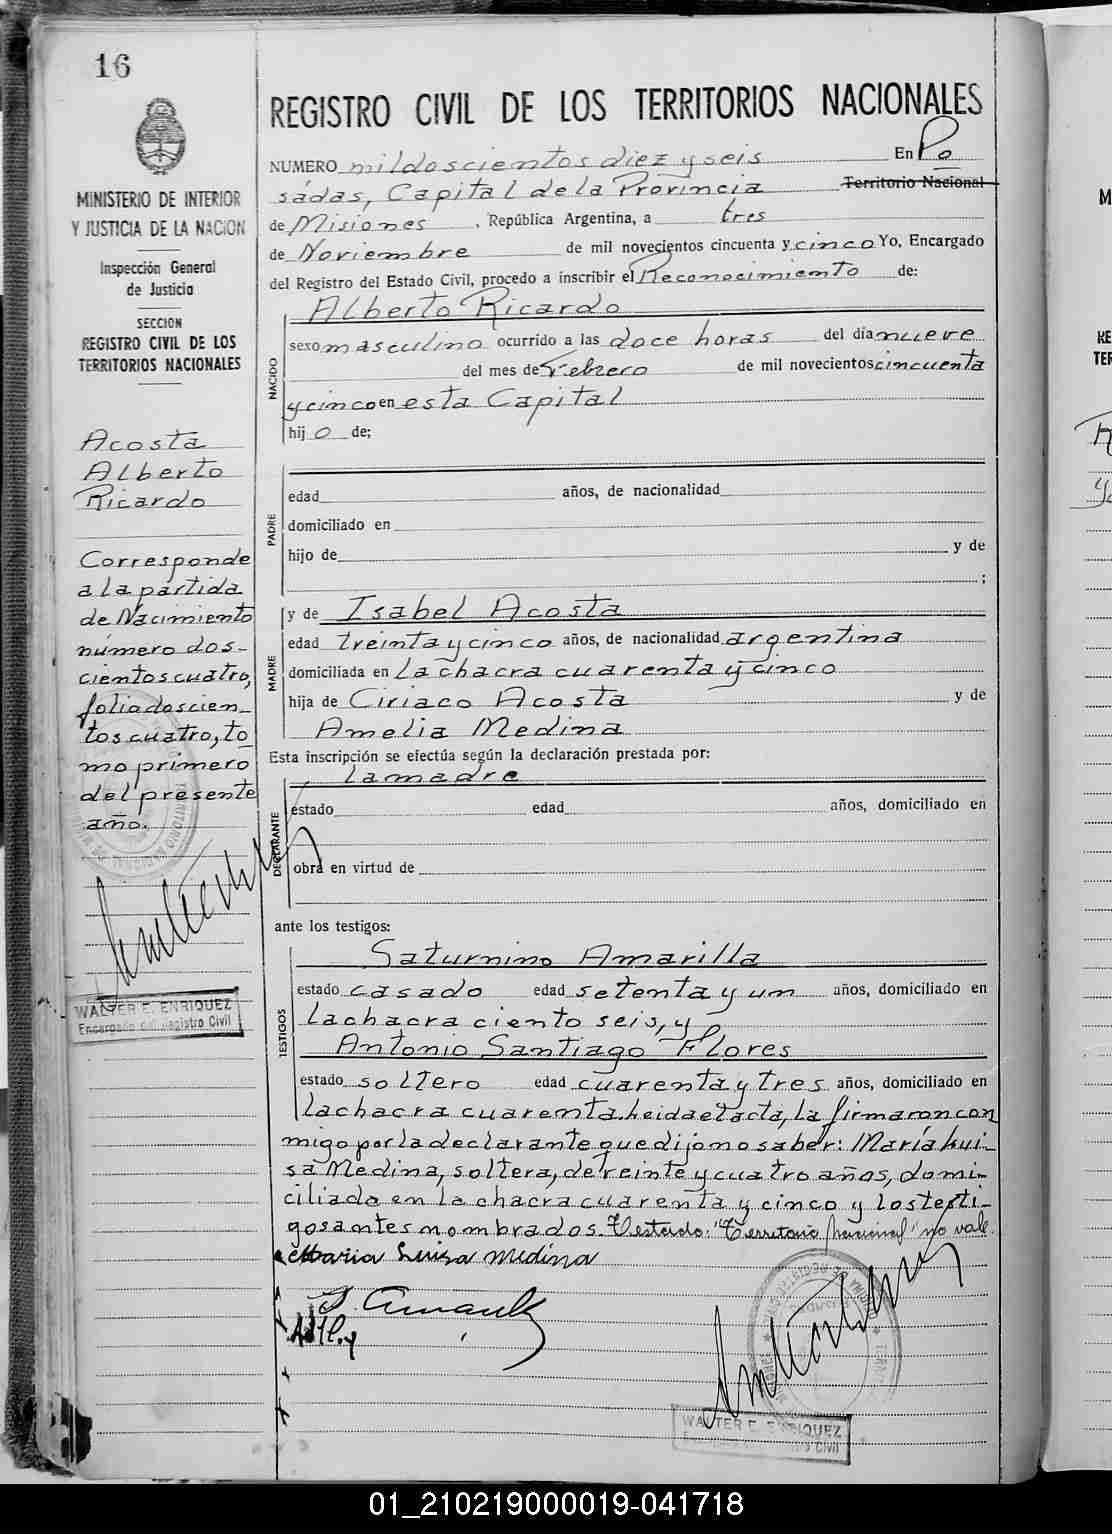 16
MINISTERIO DE INTERIOR
Y JUSTICIA DE LA NACION
Inspección General
de Justicia
SECCION
REGISTRO CIVIL DE LOS
TERRITORIOS NACIONALES
Acosta
Alberto
Ricardo
Corresponde
a la partida
de Nacimiento
número dos-
cientos cuatro,
folio doscien_
tos cuatro, to_
mo primero
del presente
año.
WALTER E. ENRIQUEZ
Encargado del Registro Civil
REGISTRO CIVIL DE LOS TERRITORIOS NACIONALES
NUMERO mil doscientos diez y seis En Po
sádas, Capital de la Provincia Territorio Nacional
de Misiones, República Argentina, a tres
de Noviembre de mil novecientos cincuenta y cinco Yo, Encargado
del Registro del Estado Civil, procedo a inscribir el Reconocimiento de:
NACIDO
Alberto Ricardo
sexo masculino ocurrido a las doce horas del día nueve
del mes de Febrero de mil novecientos cincuenta
y cinco en esta Capital
hijo de;
PADRE
edad años, de nacionalidad
domiciliado en
hijo de y de
;
MADRE
y de Isabel Acosta
edad treinta y cinco años, de nacionalidad argentina
domiciliada en la chacra cuarenta y cinco
hija de Ciriaco Acosta y de
Amelia Medina
Esta inscripción se efectúa según la declaración prestada por:
DECLARANTE
la madre
estado edad años, domiciliado en
obra en virtud de
ante los testigos:
TESTIGOS
Saturnino Amarilla
estado casado edad setenta y un años, domiciliado en
la chacra ciento seis, y
Antonio Santiago Flores
estado soltero edad cuarenta y tres años, domiciliado en
la chacra cuarenta. Leida el acta, la firmaron con
migo por la declarante que dijo no saber: María Lui_
sa Medina, soltera, de treinte y cuatro años, domi-
ciliada en la chacra cuarenta y cinco y los testi_
gos antes nombrados. Testado: "Territorio Nacional" no vale.
Maria Luisa Medina
WALTER E. ENRIQUEZ
01_210219000019-041718